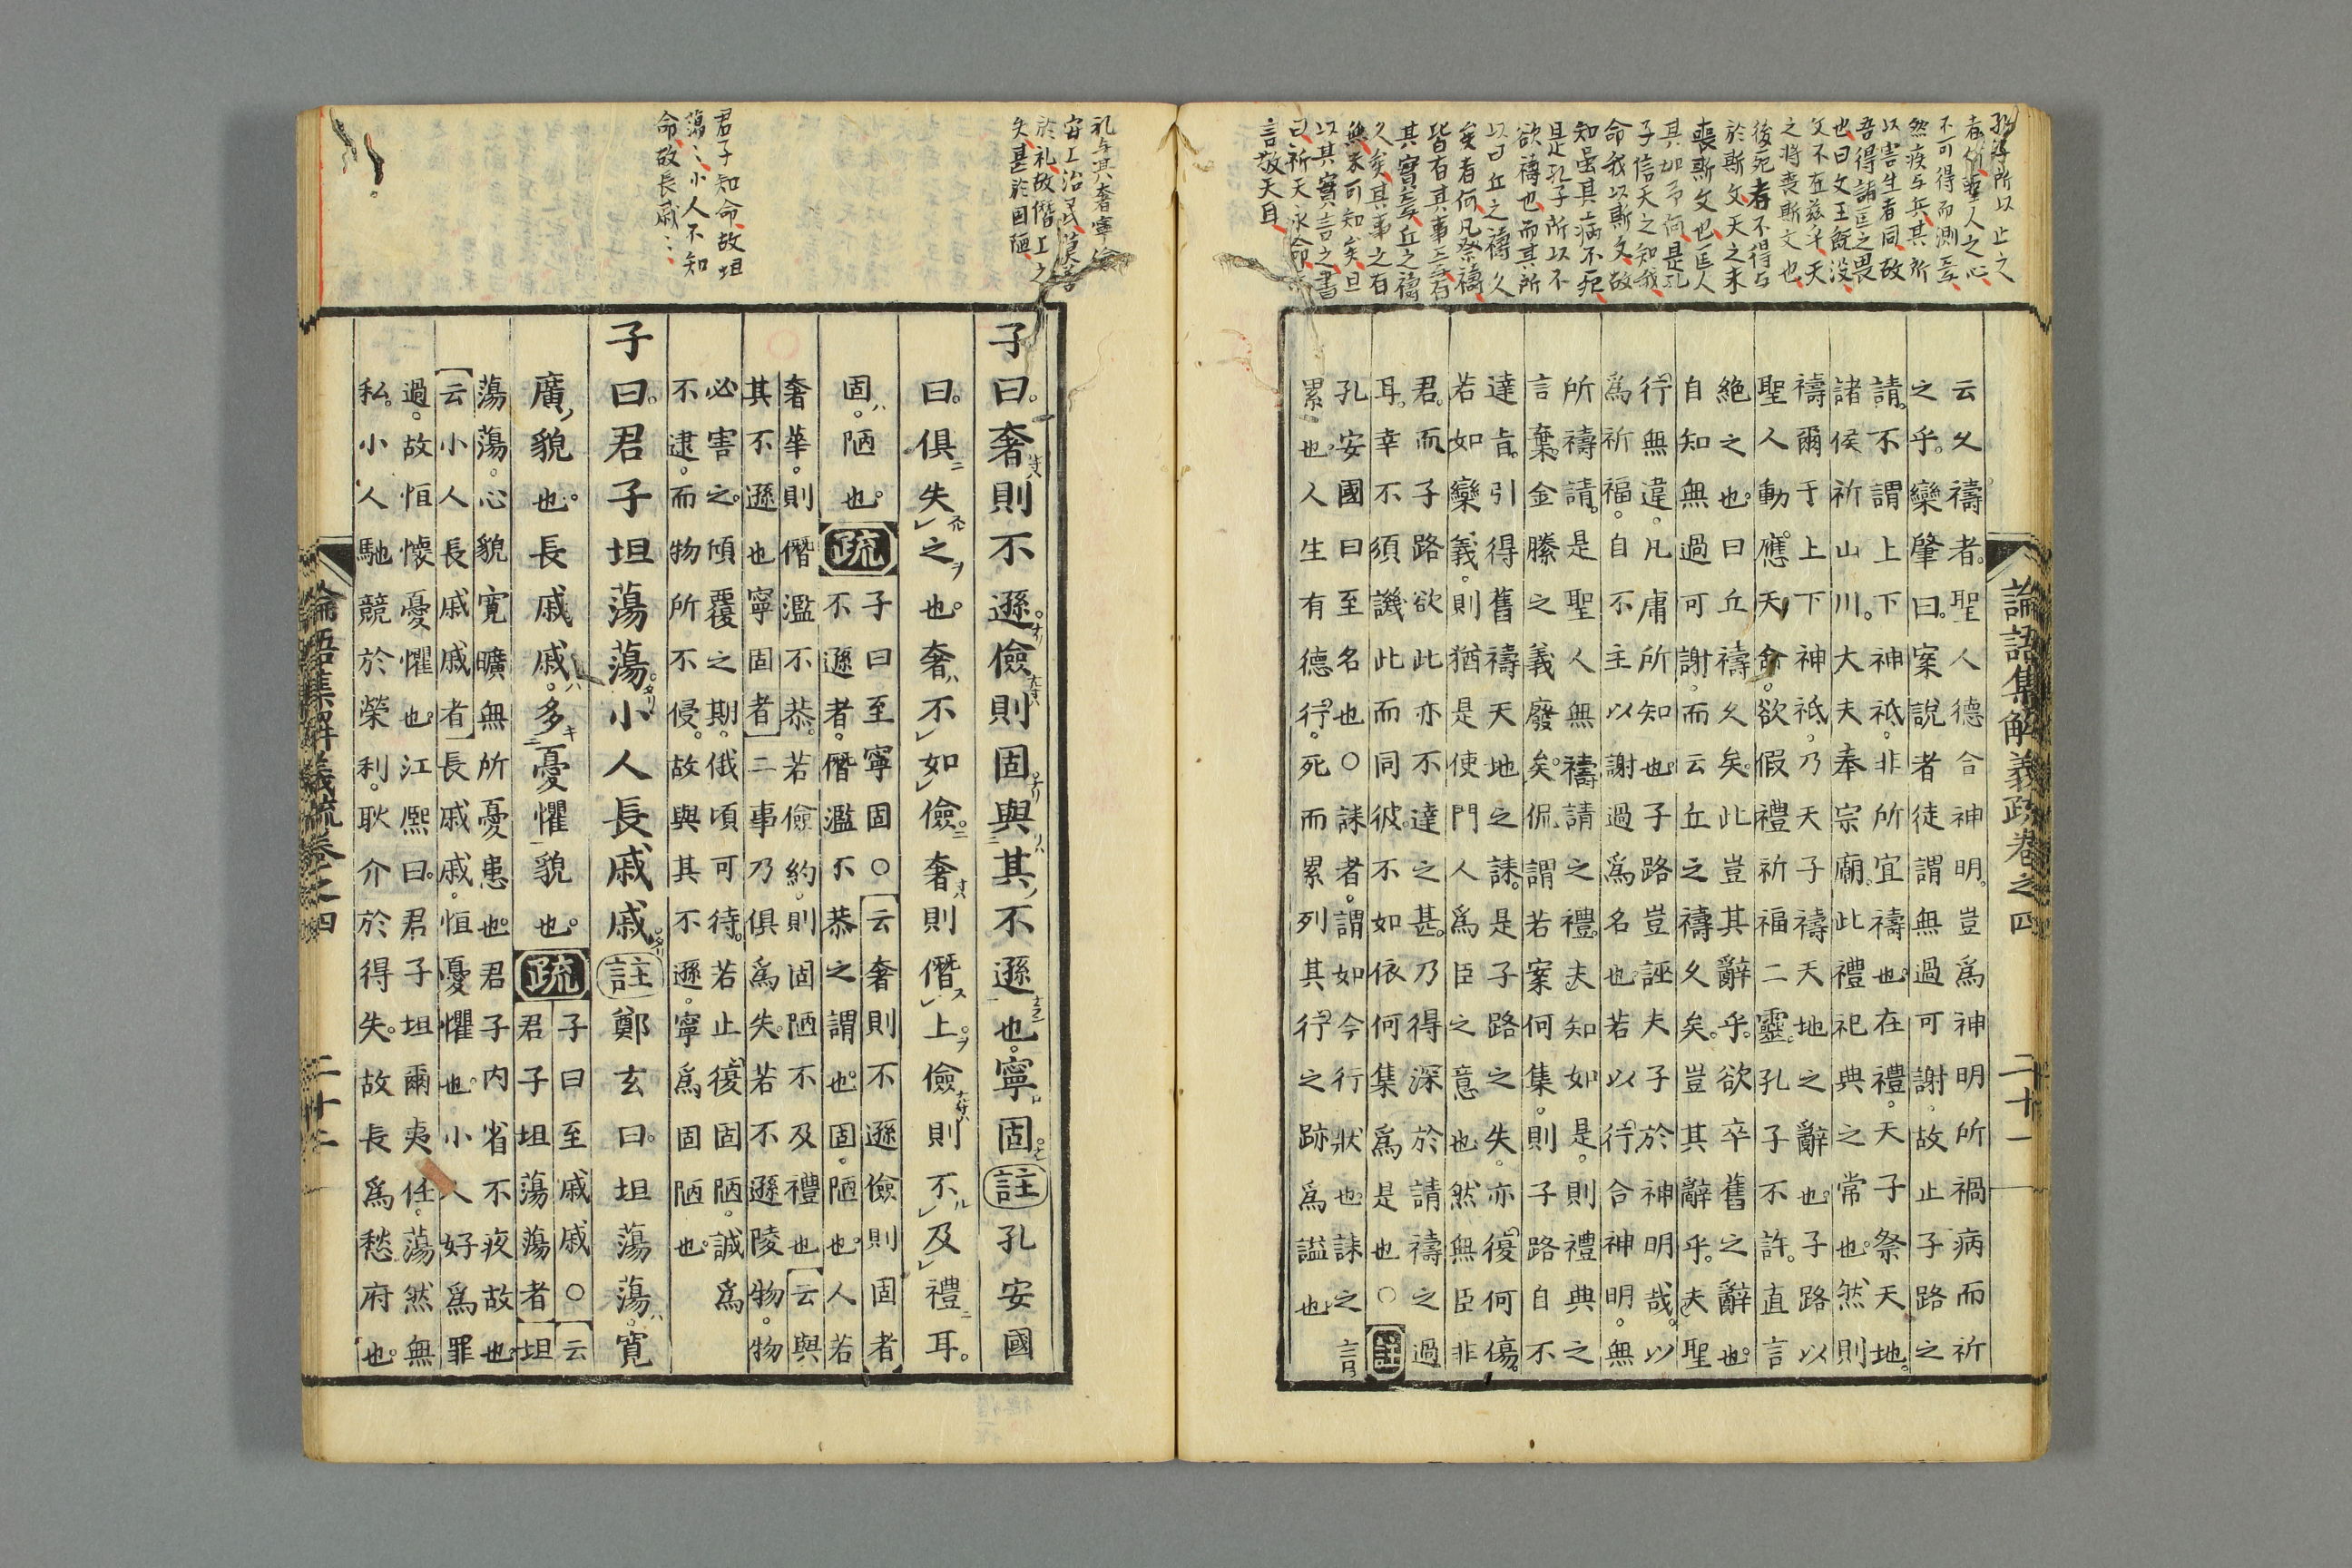 者、作聖人之心
不可得而測焉
然疾与兵其所
以害生者同故
吾得諸匡之畏
也曰文王旣没
文不在茲乎天
之將喪斯文也
後死者不得与
於斯文天之未
喪斯文也匡人
其如予何是孔
子信天之知我
命我以斯文故
知虽其病不死
是孔子所以不
欲禱也而其所
以曰丘之禱久
矣者何凡祭禱
皆有其事言有
其實焉丘之禱
久矣其事之有
無未可知矣且
以其實言之書
曰祈天永命
言敬天自
云久禱者聖人德合神明豈爲神明所禍病而祈
之乎欒肇曰案說者徒謂無過可謝故止子路之
請不謂上下神祇非所宜禱也在禮天子祭天地
諸侯祈山川大夫奉宗廟此禮祀典之常也然則
禱爾于上下神祇乃天子禱天地之辭也子路以
聖人動應天命欲假禮祈福二靈孔子不許直言
絶之也曰丘禱久矣此豈其辭乎欲卒舊之辭也
自知無過可謝而云丘之禱久矣豈其辭乎夫聖
行無違凡庸所知也子路豈誣夫子於神明哉以
爲祈福自不主以謝過爲名也若以行合神明無
所禱請是聖人無禱請之禮夫知如是則禮典之
言棄金縢之義廢矣侃謂若案何集則子路自不
達旨引得舊禱天地之誄是子路之失亦復何傷
若如欒義則猶是使門人爲臣之意也然無臣非
君而子路欲此亦不達之甚乃得深於請禱之過
耳幸不須譏此而同彼不如依何集爲是也○註
孔安國曰至名也○誄者謂如今行狀也誄之言
累也人生有德行死而累列其行之跡爲謚也
論語集解義疏卷之四 二十一
礼与其奢寧儉
安上治民莫善
於礼故僭上之
失甚於固陋
君子知命故坦
蕩〻小人不知
命故長戚〻
子曰奢則不遜儉則固與其不遜也寧固註孔安國
曰俱失之也奢不如儉奢則僭上儉則不及禮耳
固陋也疏子曰至寧固○云奢則不遜儉則固者
不遜者僭濫不恭之謂也固陋也人若
奢華則僭濫不恭若儉約則固陋不及禮也云與
其不遜也寧固者二事乃俱爲失若不遜陵物物
必害之傾覆之期俄頃可待若止復固陋誠爲
不逮而物所不侵故與其不遜寧爲固陋也
子曰君子坦蕩蕩小人長戚戚註鄭玄曰坦蕩蕩寛
廣貌也長戚戚多憂懼貌也疏子曰至戚戚○云
君子坦蕩蕩者坦
蕩蕩心貌寛曠無所憂患也君子内省不疚故也
云小人長戚戚者長戚戚恒憂懼也小人好爲罪
過故恒懷憂懼也江熙曰君子坦爾夷任蕩然無
私小人馳競於榮利耿介於得失故長爲愁府也
論語集解義疏卷之四 二十二